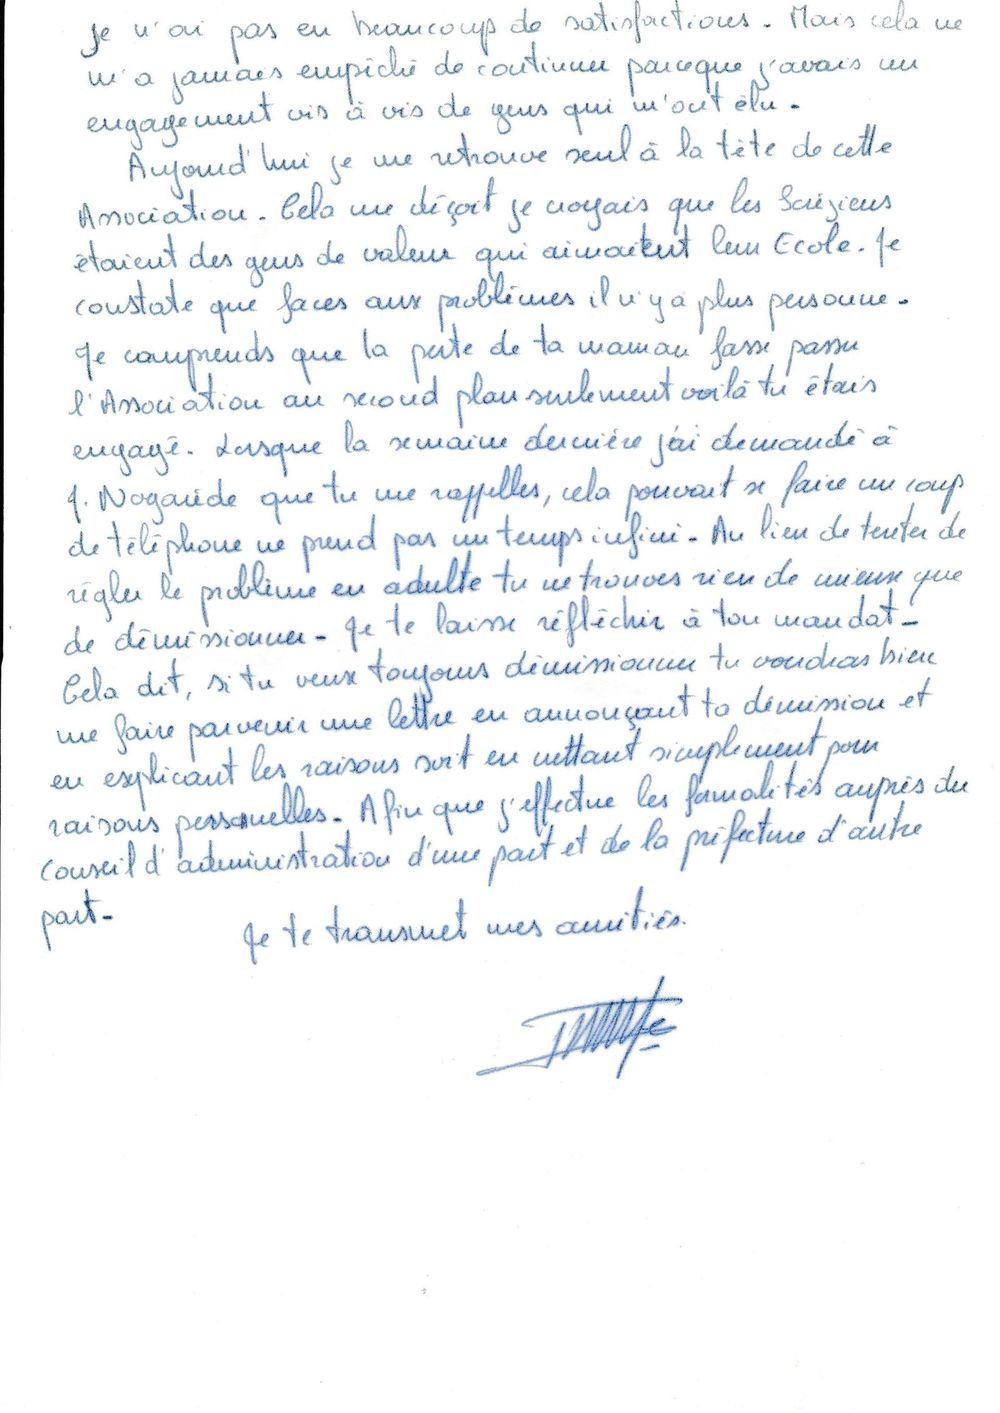 je n'ai pas eu beaucoup de satisfactions. Mais cela ne
m'a jamais empêché de continuer parceque j'avais un
engagement vis à vis de gens qui m'ont élu.
Aujourd'hui je me retrouve seul à la tête de cette
Association. Cela me déçoit je croyais que les Soréziens
étaient des gens de valeur qui aimaient leur Ecole. Je
constate que faces aux problèmes il n'y a plus personne.
Je comprends que la perte de ta maman fasse passer
l'Association au second plan seulement voilà tu étais
engagé. Lorsque la semaine dernière j'ai demandé à
J. Nogarède que tu me rappelles, cela pouvait se faire un coup
de téléphone ne prend pas un temps infini. Au lieu de tenter de
régler le problème en adulte tu ne trouves rien de mieux que
de démissionner. Je te laisse réfléchir à ton mandat.
Cela dit, si tu veux toujours démissionner tu voudras bien
me faire parvenir une lettre en annonçant ta démission et
en explicant les raisons soit en mettant simplement pour
raisons personnelles. Afin que j'effectue les formalités auprès du
Conseil d'administration d'une part et de la préfecture d'autre
part.
Je te transmet mes amitiés.